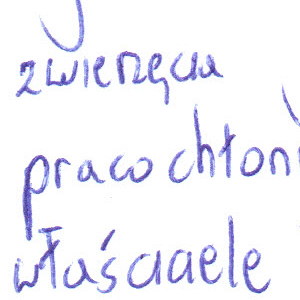 zwierzęcia
pracochłon
właściciele